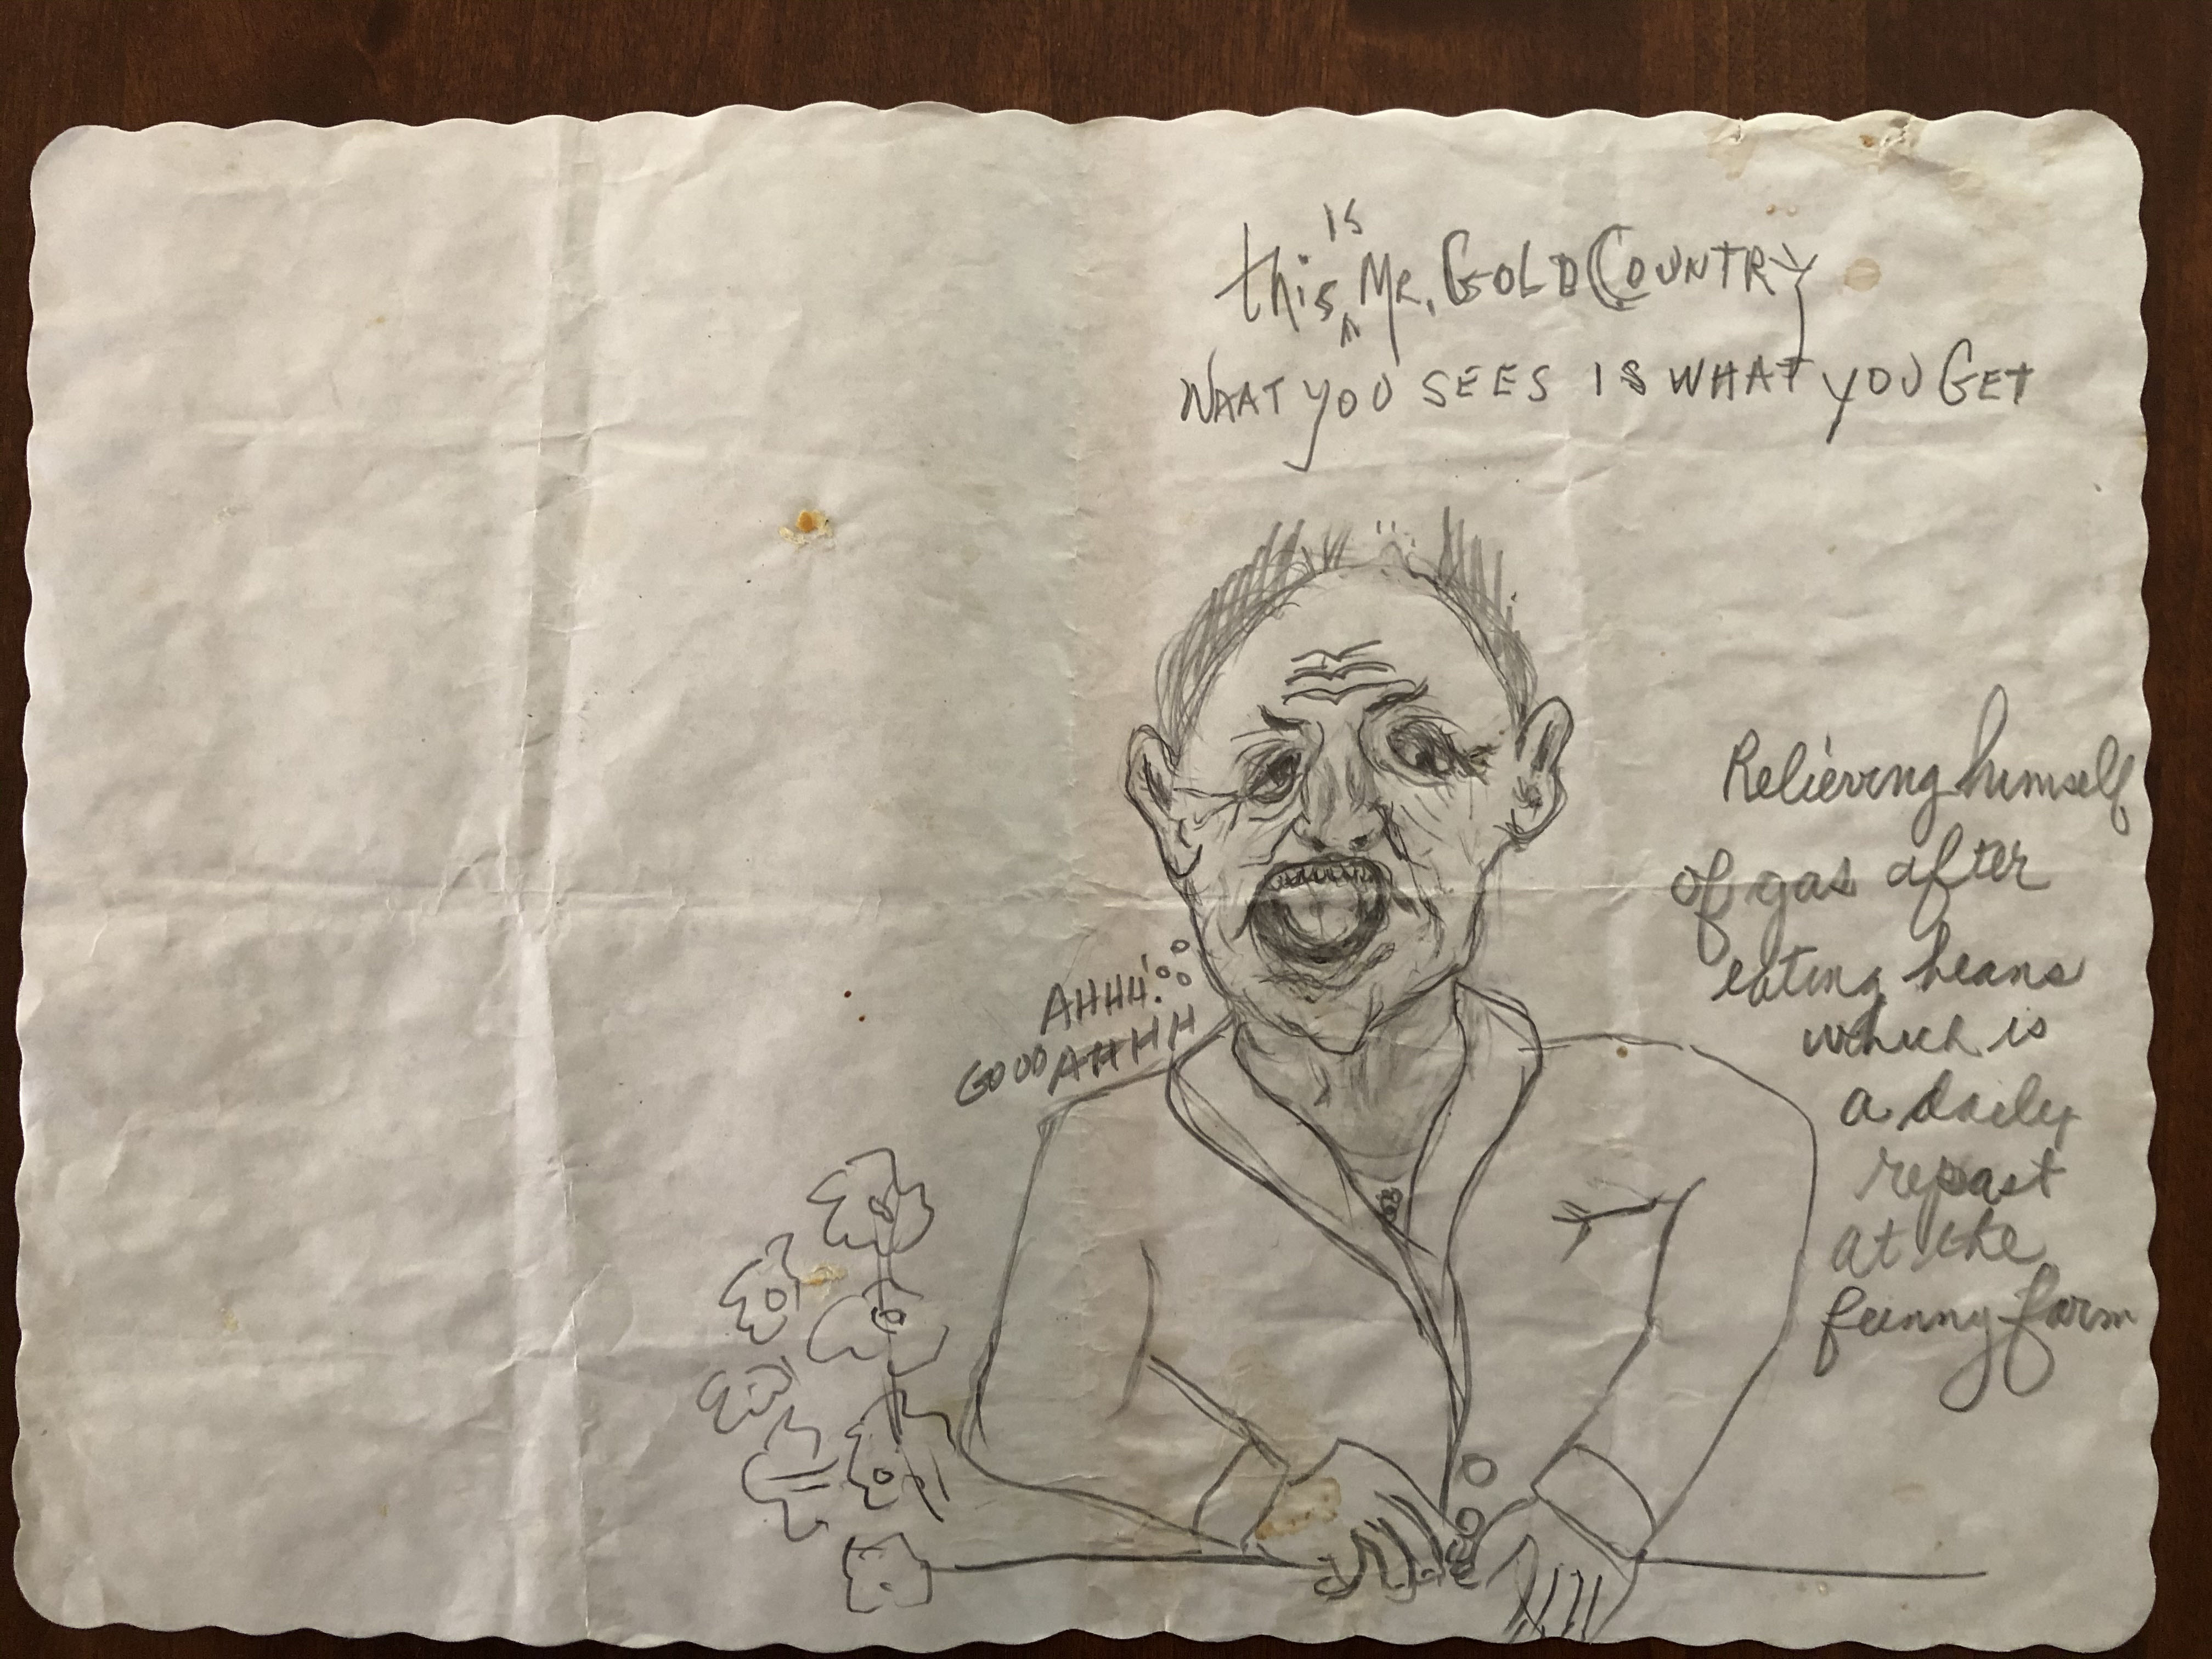 this is Mr. GOLD COUNTRY
WHAT YOU SEES IS WHAT YOU GET
Relieving himself
of gas after
eating beans
which is
a daily
repast
at the
funny farm
AHHH!
GOOD AHHHH